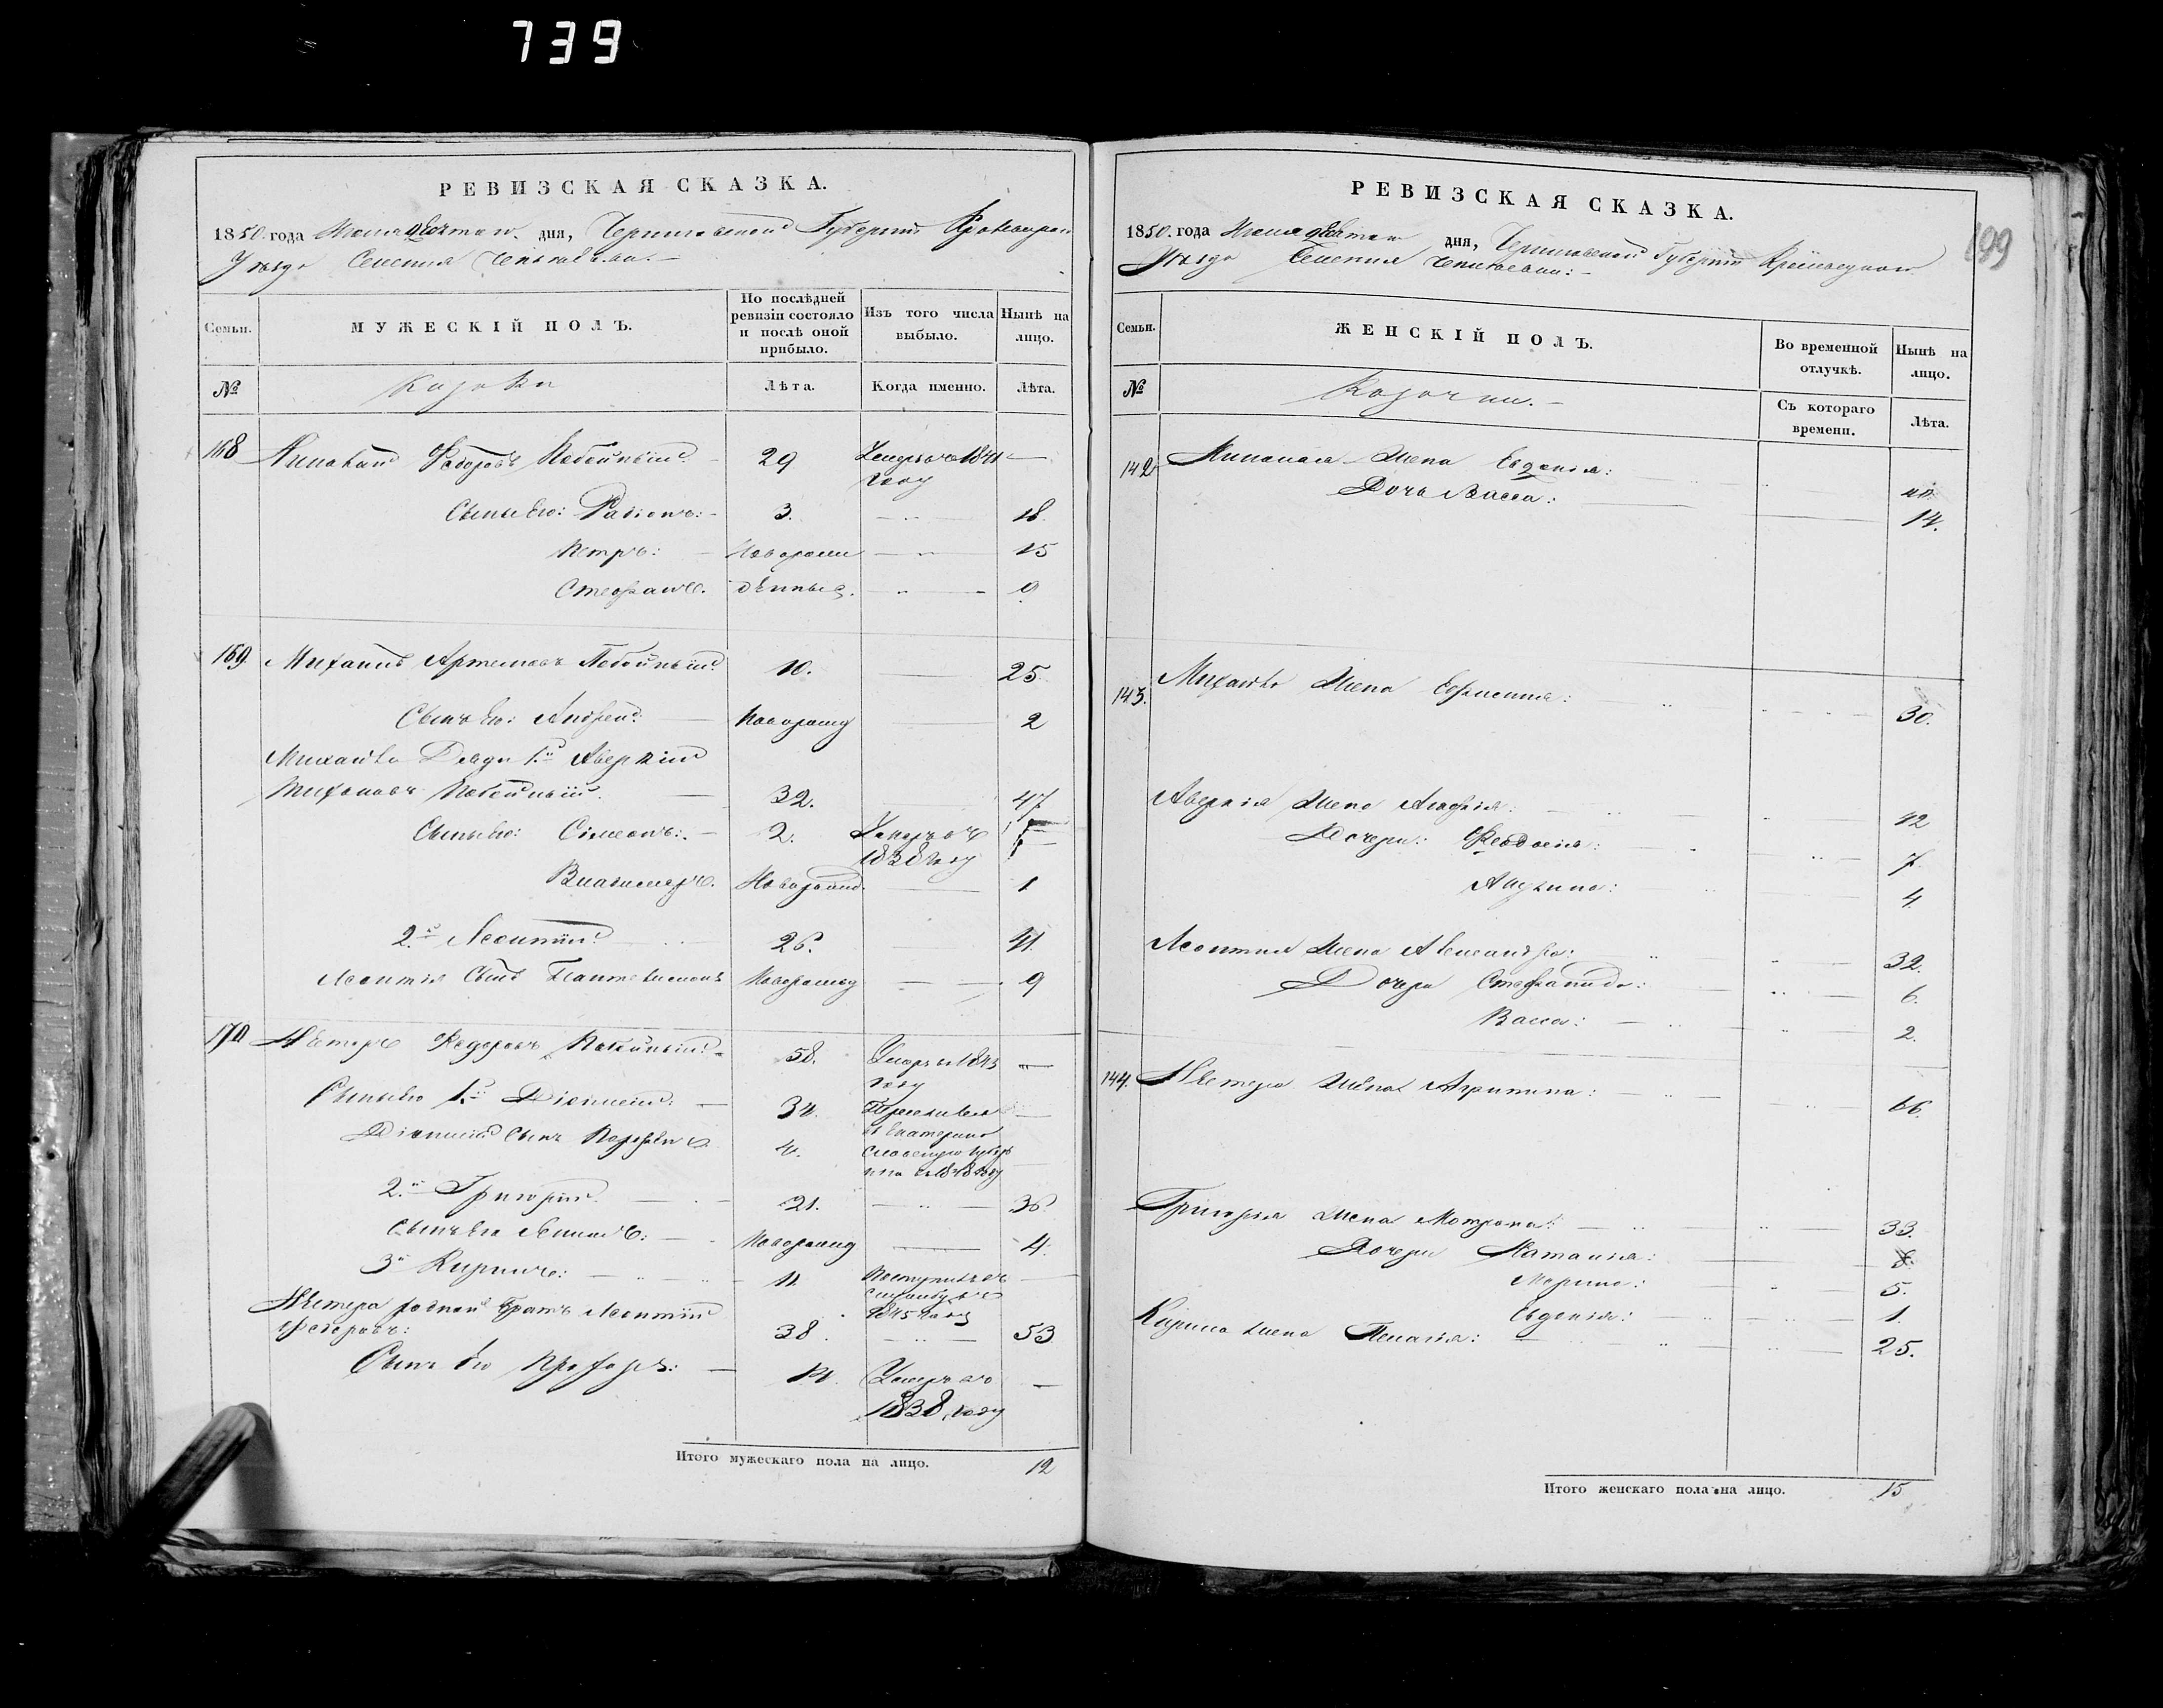 739
РЕВИЗСКАЯ СКАЗКА.
1850 года дня, Черниговской Губернии
Уезда Селения
Семьи.
МУЖЕСКІЙ ПОЛЪ.
По послѣдней ревизіи состояло и послѣ оной прибыло.
Изъ того числа выбыло.
Нынѣ на лицо.
№
Козаки
Лѣта.
Когда именно.
Лѣта.
168 Федоровъ 29 1841 году
Сыновья: Родіонъ: 3. 18.
Петръ: Новорож 15
Стефанъ. денные. 9
169. Михаилъ Артемовъ 10. 25
Сынъ его: Андрей Новорожд 2
Михаила Дяди 1й Аверкій
32. 47
Сыновья: Симеонъ: 2. Умеръ въ
1838 году
Владимеръ. Новорожд. 1
2й Леонтій 26. 41.
Леонтія Сынъ Пантелимонъ Новорожд 9
170 Нестеръ Федоровъ 58. Умеръ 1843
году
Сыновья 1й Діонисій: 34. Переселился
Діонисія Сынъ 4. въ Екатерино
славскую Губер
нію въ 1848 году
2й Григорій 21. 36
Сынъ его Новорожд 4.
3й Кирилъ: 11. Поступилъ въ
Нестера родной Братъ Леонтій 1845 году
Федоровъ: 38. 53
Сынъ его Прохоръ: 14. Умеръ въ
1838 году
Итого мужескаго пола на лицо. 12
РЕВИЗСКАЯ СКАЗКА.
1850. года дня, Черниговской Губерніи
Уезда Селения
199
Семьи.
ЖЕНСКІЙ ПОЛЪ.
Во временной отлучкѣ.
Нынѣ на лицо.
№
Козачки.
Съ котораго времени.
Лѣта.
142 Жена Евдокія: 40
Дочь Васса: 14.
143. Михаила Жена Ефросинія: 30.
Аверкія Жена Агафія: 42
Дочери: Феодосія: 7.
4.
Леонтія Жена Александра: 32.
Дочери Стефанида: 6.
Васса: 2.
144. Нестера Жена Агрипина: 66.
Григорія Жена Мотрона: 33.
Дочери Наталія: 8.
Марина: 5.
Евдокія: 1.
Кирила Жена Пелагія: 25.
Итого женскаго пола на лицо. 15